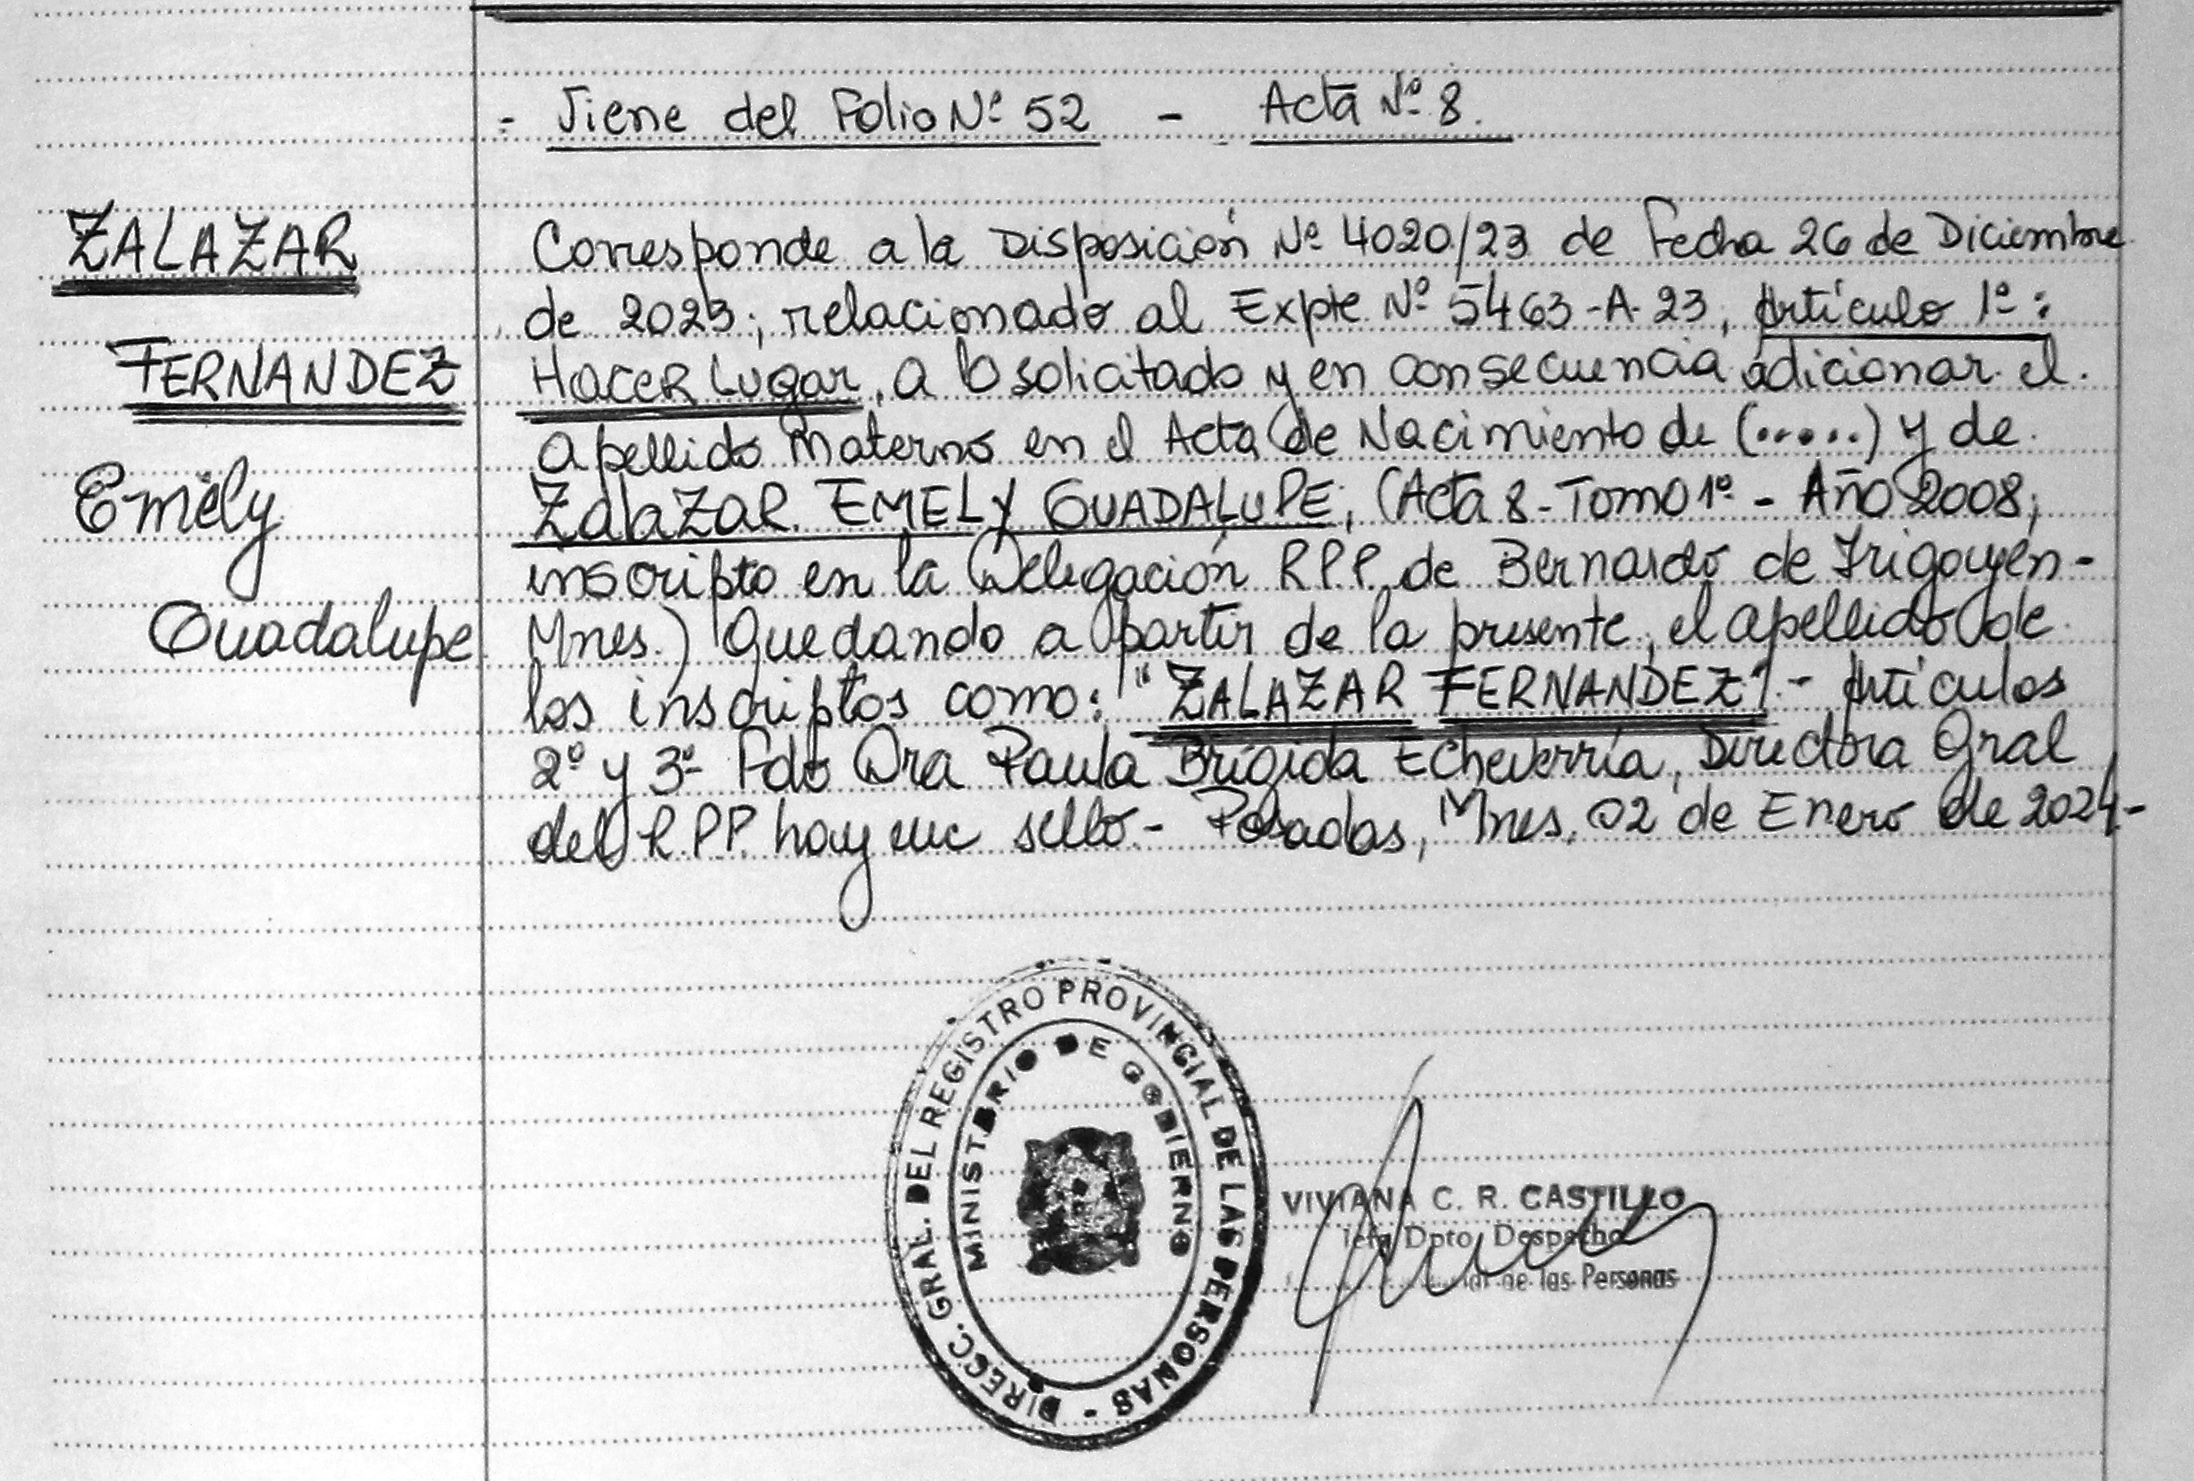 - Viene del Folio Nº 52 - Acta Nº 8.
ZALAZAR
FERNANDEZ
Emely
Guadalupe
Corresponde a la Disposición Nº 4020/23 de Fecha 26 de Diciembre
de 2023; relacionado al Expte Nº 5463-A-23, Artículo 1º:
HACER Lugar, a lo solicitado y en consecuencia adicionar el
apellido materno en el Acta de Nacimiento de (.....) y de
ZalaZAR EMELY GUADALUPE; (Acta 8-Tomo 1º - Año 2008;
inscripto en la Delegación RPP de Bernardo de Irigoyen-
Mnes.) Quedando a partir de la presente, el apellido de
los inscriptos como: "ZALAZAR FERNANDEZ".- Artículos
2º y 3º- Fdo Dra Paula Brígida Echeverría, Directora Gral
del RPP. hay un sello.- Posadas, Mnes, 02 de Enero de 2024-
DIRECC. GRAL. DEL REGISTRO PROVINCIAL DE LAS PERSONAS -
MINISTERIO DE GOBIERNO
VIVIANA C. R. CASTILLO
Dpto. Despacho
de las Personas